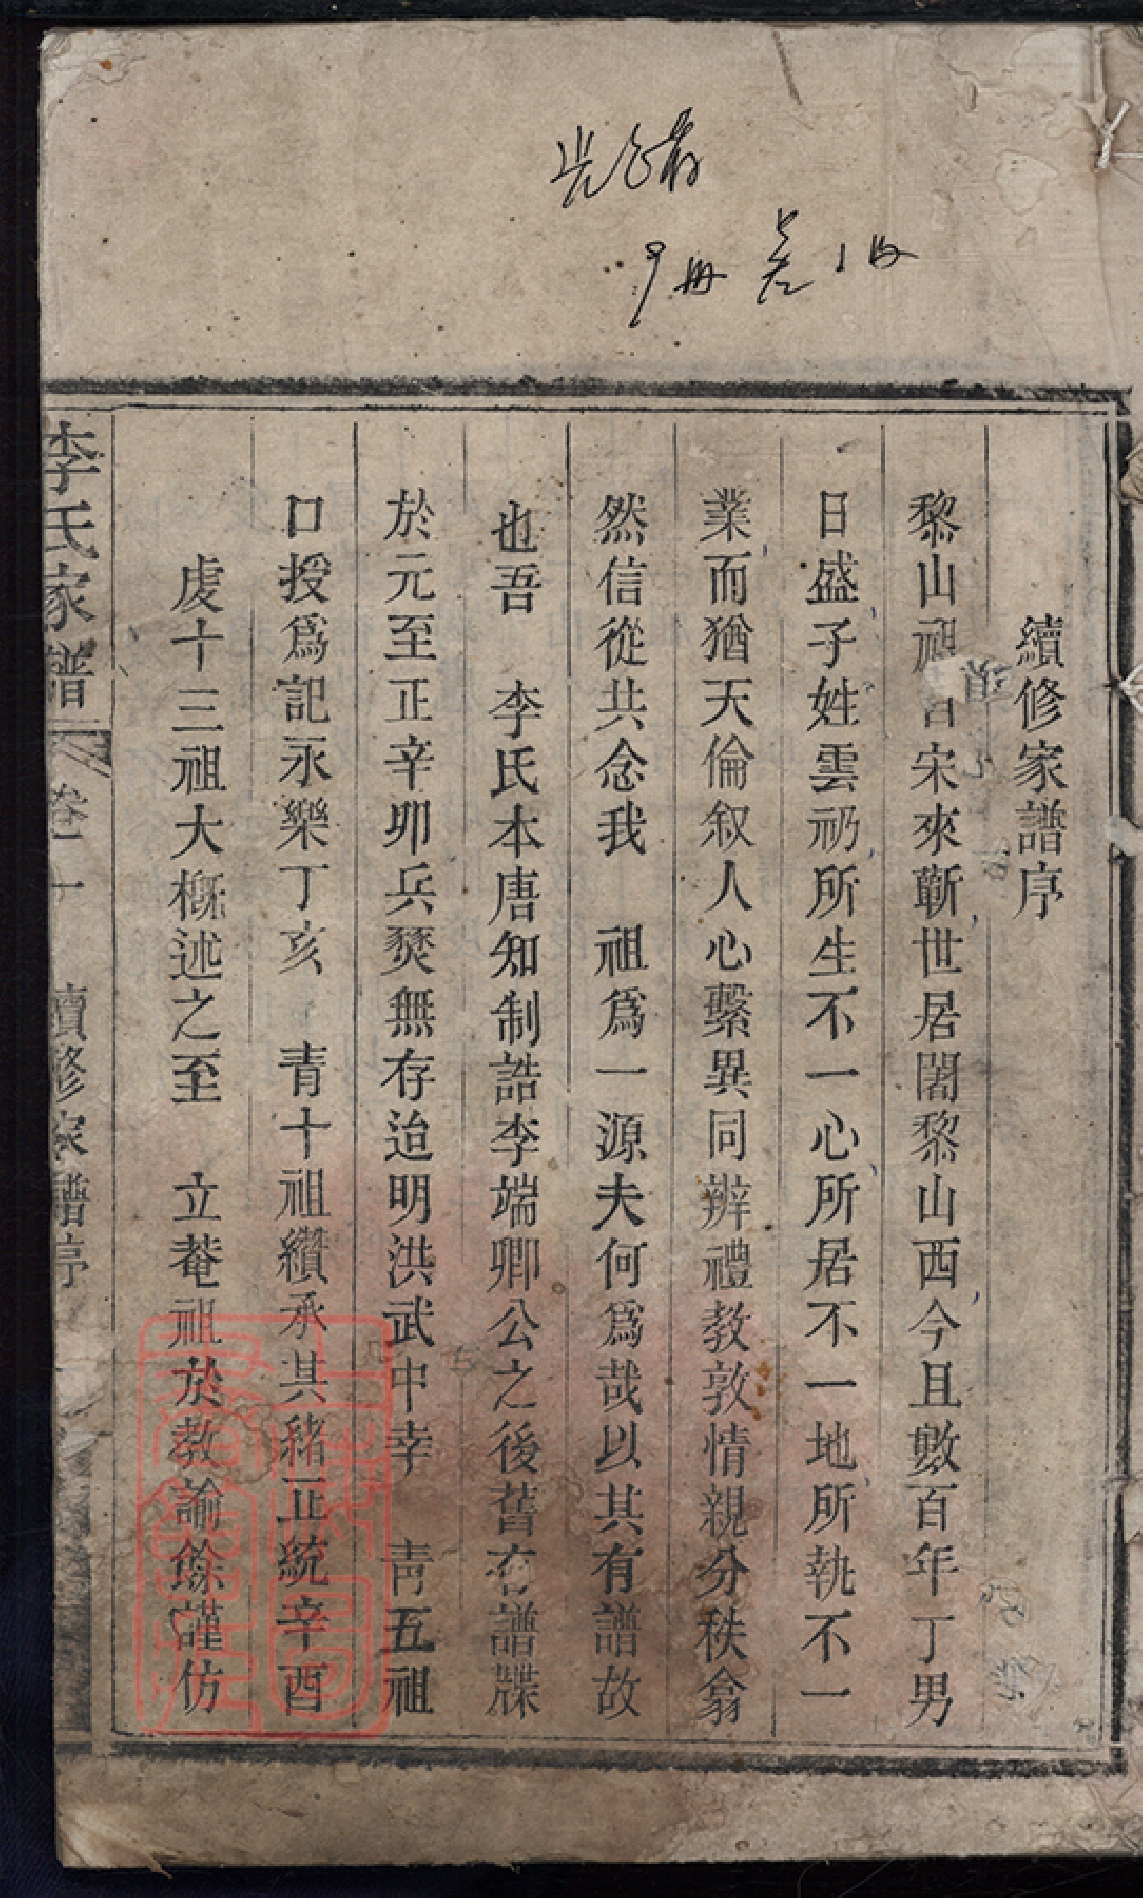 續修家譜序
黎山祖自宋來蘄世居闍黎山西今且數百年丁男
日盛子姓雲礽所生不一心所居不一地所執不一
業而猶天倫叙人心繫異同辨禮教敦情親分秩翕
然信從共念我 祖爲一源夫何爲哉以其有譜故
也吾 李氏本唐知制誥李端卿公之後舊有譜牒
於元至正辛卯兵燹無存迨明洪武中幸 靑五祖
口授爲記永樂丁亥 青十祖纘承其緒正統辛酉
虔十三祖大槪述之至 立菴祖於教諭餘謹仿
李氏家譜 卷一 續修家譜序